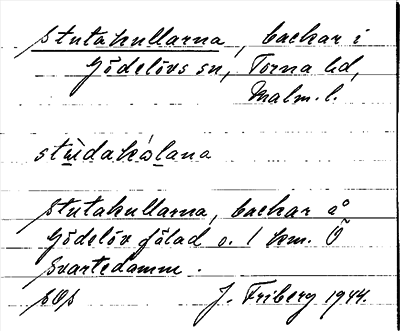 Stutakullarna, backar i
Gödelövs sn, Torna hd,
Malm. l.
stùdakólana
Stutakullarna, backar å
Gödelöv fälad o. 1 km. Ö
Svartedamm.
J. Friberg 1944.